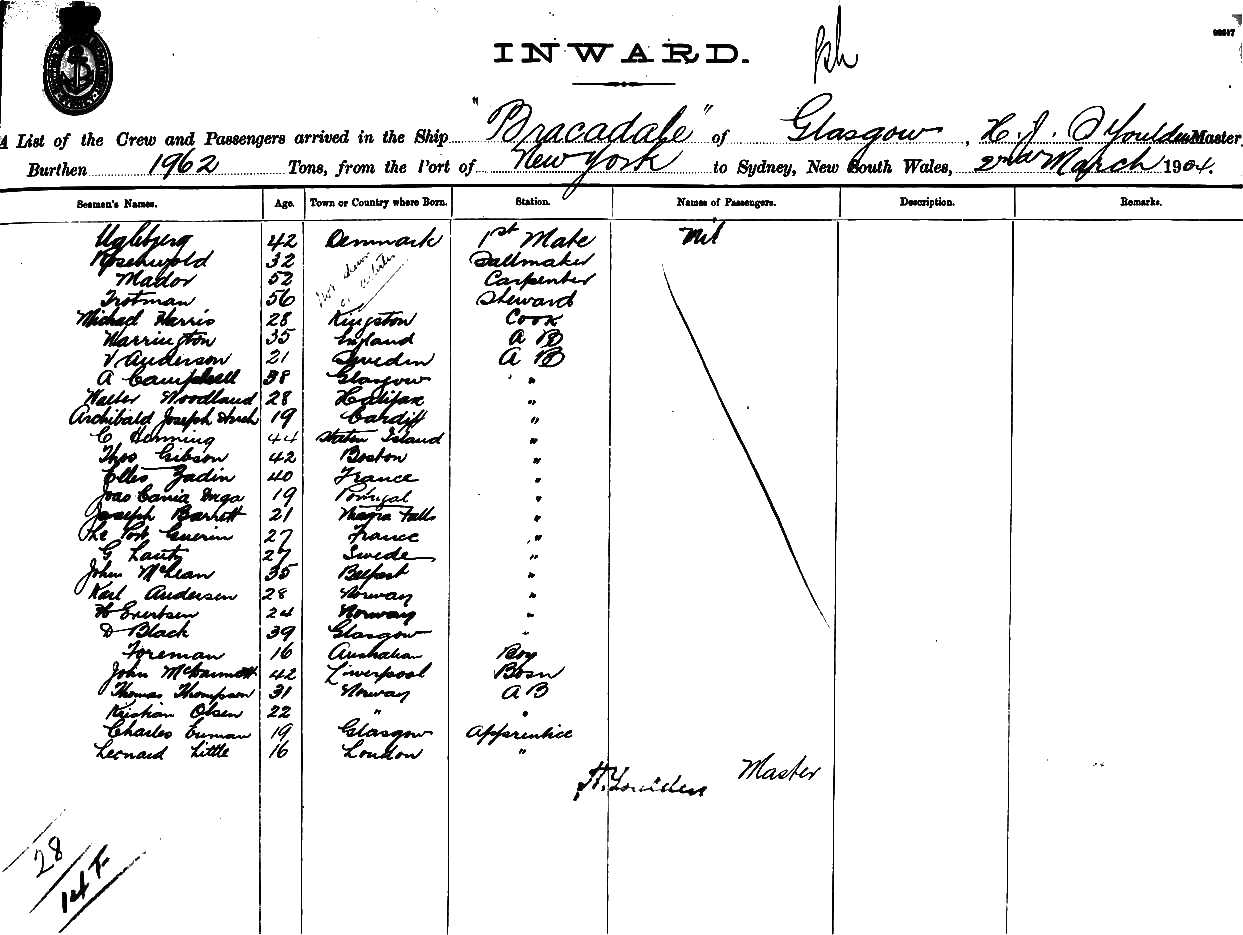 INWARD.
A List of the Crew and Passengers arrived in the Ship "Bracadale" of Glasgow, H. J. Youlden Master,
Burthen 1962 Tons, from the Port of New York to Sydney, New South Wales, 2nd March 1904.
Seamen's Names. Age. Town or Country where Born. Station. Names of Passengers. Description. Remarks.
42 Denmark 1st Mate Nil
32 Sailmaker
Mador 52 Carpenter
Trotman 56 Steward
Michael Harris 28 Kingston Cook
Warrington 35 England A B
V Anderson 21 Sweden A B
A Campbell 38 Glasgow "
Walter Woodland 28 Halifax "
Archibald Joseph 19 Cardiff "
C Henning 44 Staten Island "
Thos Gibson 42 Boston "
Zadin 40 France "
Joao 19 Portugal "
Joseph Barrett 21 Niagra Falls "
Guerin 27 France "
G Lautz 27 Swede "
John McLean 35 Belfast "
Karl Andersen 28 Norway "
H Evertsen 24 Norway "
D Black 39 Glasgow "
Foreman 16 Australian Boy
John 42 Liverpool Bosn
Thomas Thompson 31 Norway A B
Kristian Olsen 22 " "
Charles 19 Glasgow Apprentice
Leonard Little 16 London "
H. Youlden Master
28
14 F